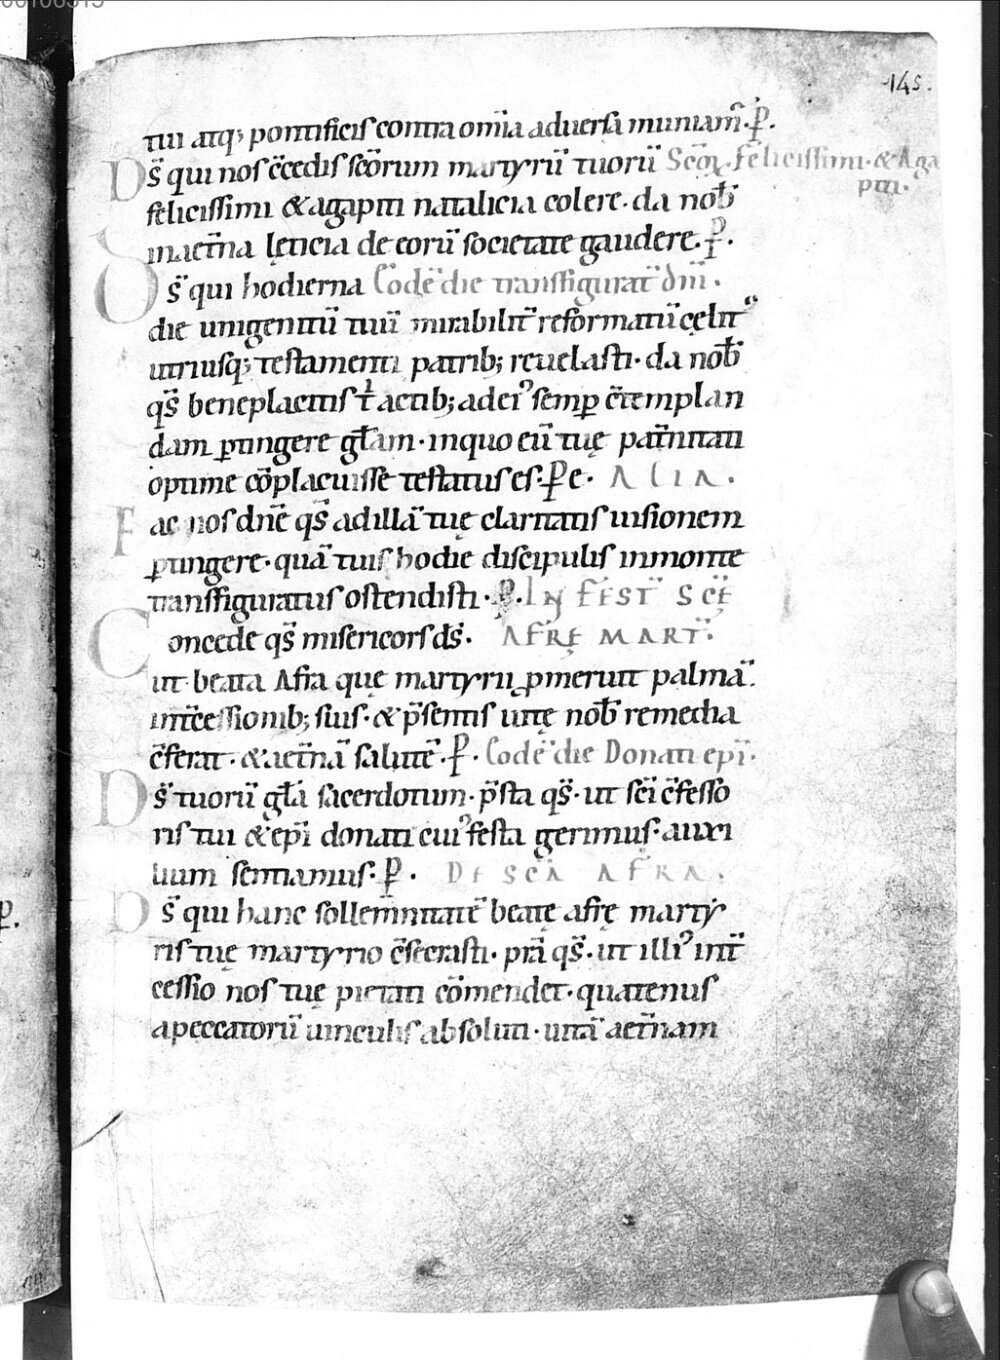 145.
tui atq; pontificis contra om̄ia aduersa muniam̄·p̄·
Ds̄ qui nos c̄cedis sc̄orum martyrū tuorū Scōꝝ. felicissimi·&Aga
piti·
felicissimi &agapiti natalicia colere·da nob̄
inaet̄na lęticia de eorū societate gaudere·p̄·
Ds̄ qui hodierna Eodē die transfigurat̄ dn̄i·
die unigenitū tuū mirabilit̄ reformatū cęlit᷒
utriusq; testamenti patrib; reuelasti·da nob̄
qs̄ beneplacitis t̄ actib; adei᷒ semp̄ c̄templan
dam ꝑtingere gl̄am·inquo eū tuę pat̄nitati
optime cōplacuisse testatus es·P̄ e· ALIA·
Fac nos dn̄e qs̄ adillā tuę claritatis uisionem
ꝑtingere·quā tuis hodie discipulis inmonte
transfiguratus ostendisti·p̄· IN FEST̄ SC̄Ę
Concede qs̄ misericors ds̄· AFRĘ MART̄·
ut beata Afra quę martyrii ꝑmeruit palmā·
int̄cessionib; suis·&p̄sentis uitę nob̄ remedia
c̄ferat·&aet̄nā salutē·p̄· Eodē die Donati epi̅·
Ds̄ tuorū gl̄a sacerdotum·p̄sta qs̄·ut sc̄i c̄fesso
ris tui &epi̅ donati cui᷒ festa gerimus·auxi
lium sentiamus·p̄· DE SC̄A AFRA·
Ds̄ qui hanc sollemnitatē beatę afrę marty
ris tuę martyrio c̄secrasti·pr̄a qs̄·ut illi᷒ int̄
cessio nos tuę pietati cōmendet·quatenus
apeccatorū uinculis absoluti·uitā aet̄nam